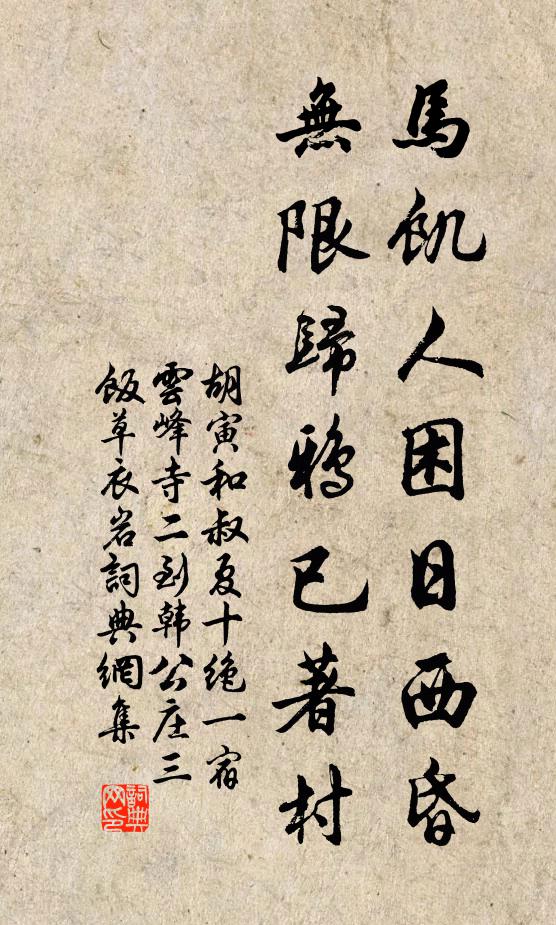 馬飢人困日西昏
無限歸鴉已著村
胡寅和叔夏十絶一宿
雲峰寺二到韩公庄三
飯草衣岩詞典網集
詞典网印